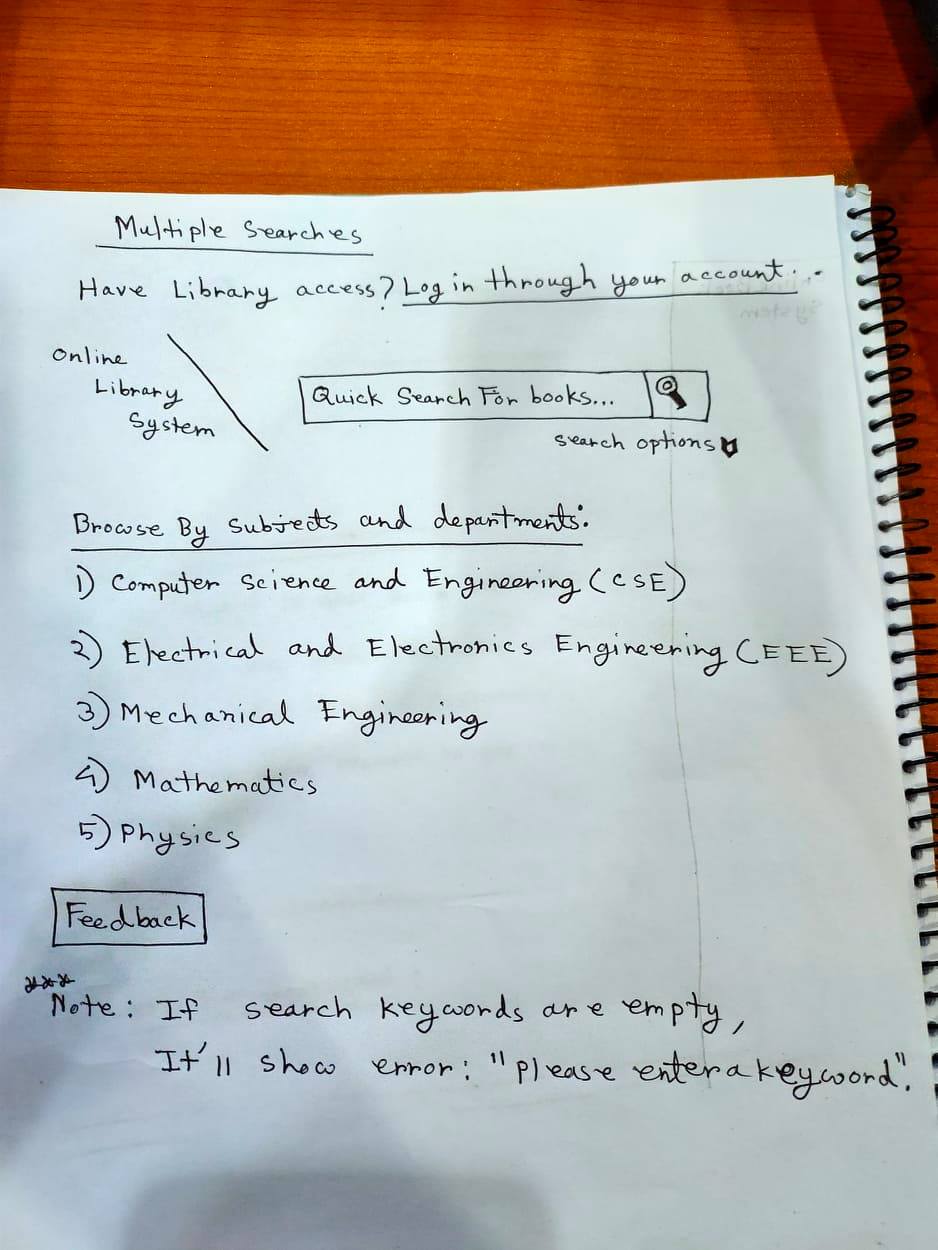 Multiple Searches
Have Library access? Log in through your account...
Online
Library
System
Quick Search For books...
search options
Browse By Subjects and departments:
1) Computer Science and Engineering (CSE)
2) Electrical and Electronics Engineering (EEE)
3) Mechanical Engineering
4) Mathematics
5) Physics
Feedback
***
Note: If search keywords are empty,
It'll show error: "please enter a keyword".